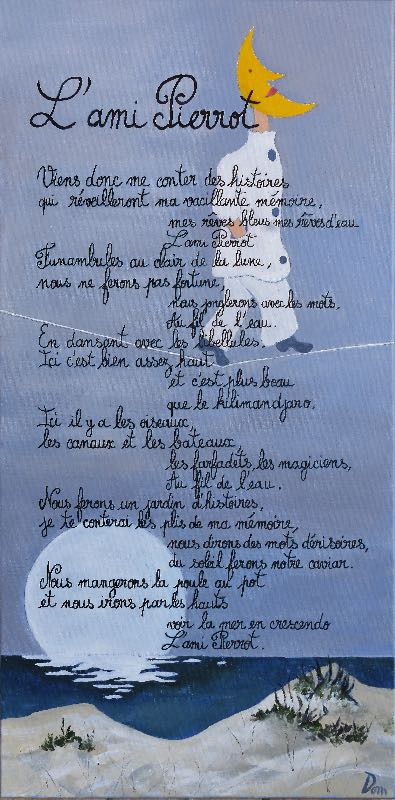 L'ami Pierrot
Viens donc me conter des histoires
qui réveilleront ma vacillante mémoire,
mes rêves bleus mes rêves d'eau
L'ami Pierrot
Funambules au clair de la lune,
nous ne ferons pas fortune,
nous jonglerons avec les mots,
Au fil de l'eau.
En dansant avec les libellules,
Ici c'est bien assez haut
et c'est plus beau
que le kilimandjaro,
Ici il y a les oiseaux,
les canaux et les bateaux
les farfadets, les magiciens,
Au fil de l'eau.
Nous ferons un jardin d'histoires,
je te conterai les plis de ma mémoire,
nous dirons des mots dérisoires,
du soleil ferons notre caviar.
Nous mangerons la poule au pot
et nous irons par les hauts
voir la mer en crescendo
L'ami Pierrot.
Dom